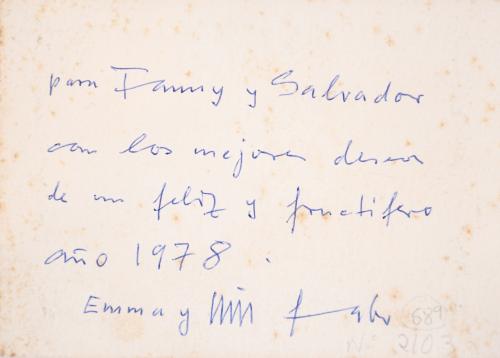 para Fanny y Salvador
con los mejores deseos
de un feliz y fructífero
año 1978.
Emma y
689
Nº 2103